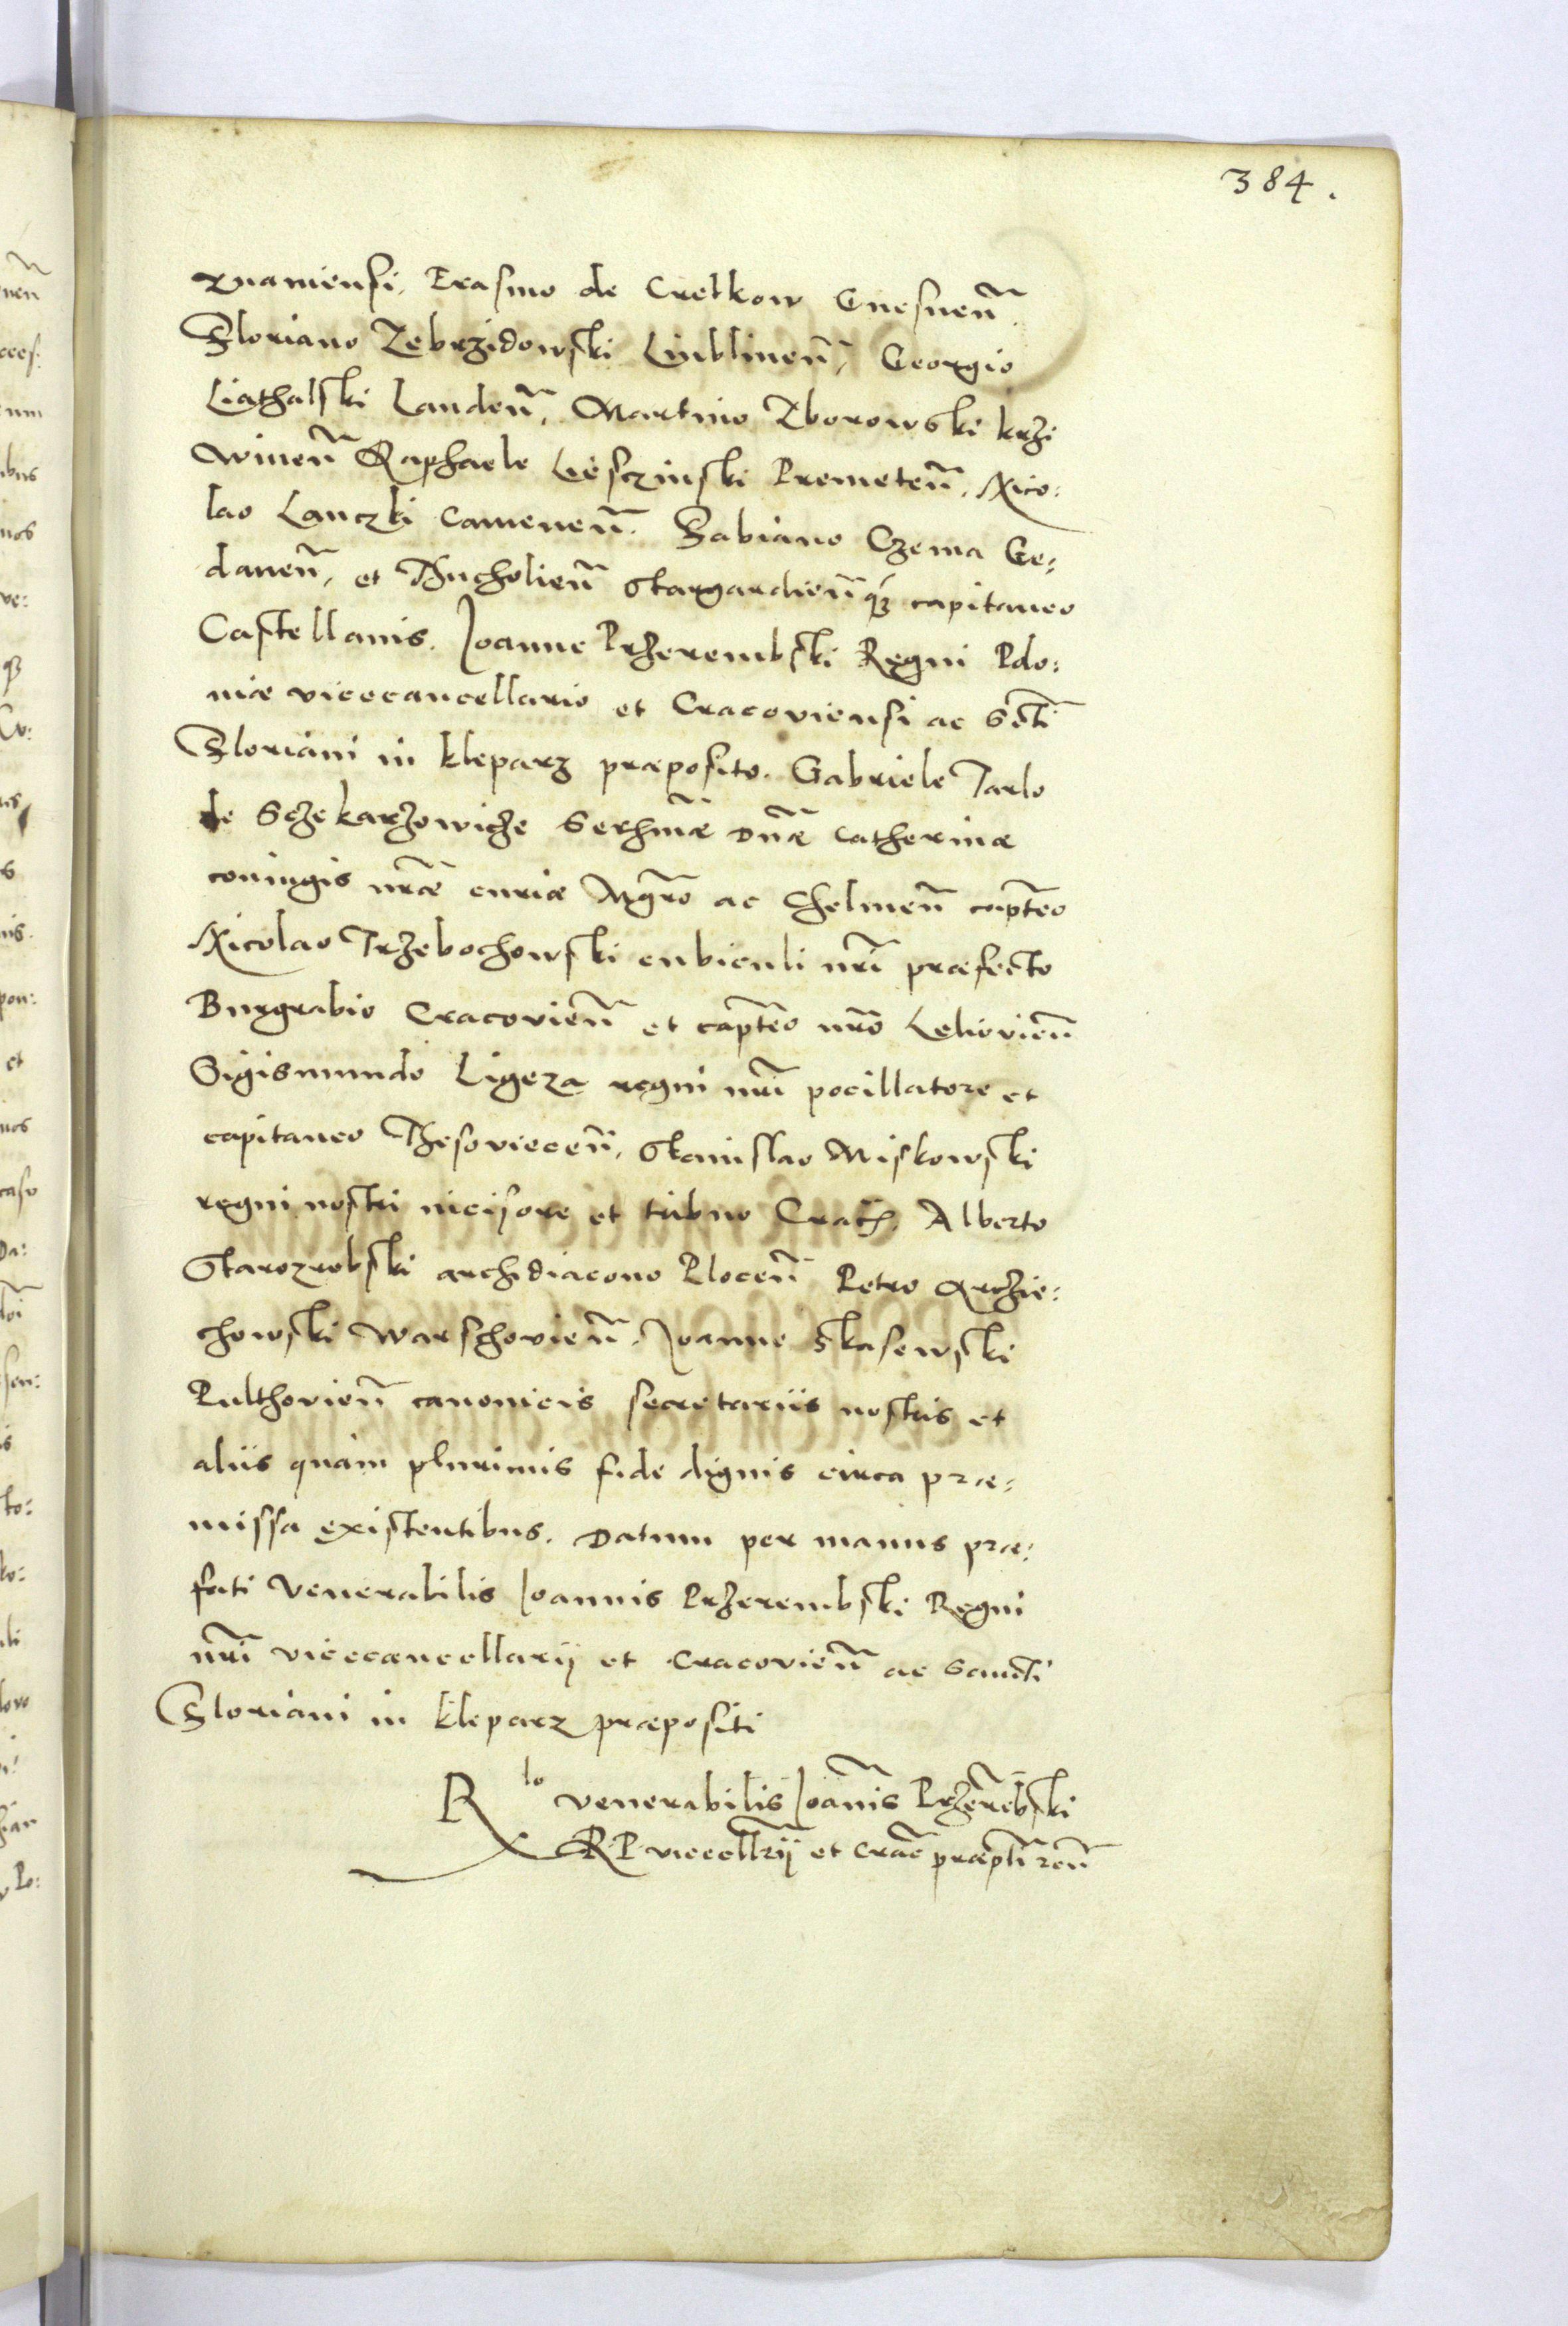 384.
znaniensi, Erasmo de Cretkow Gnesnen̄.
Floriano Zebrzidowski Lublinen̄, Georgio
Liathalski Landen̄, Martino Zborowski krzi
winen̄ Raphaele Lesczinski Premeten̄, Nico:
lao Lanczki Camenen̄. Fabiano Czema Ge:
danen̄, et Thucholien̄ Stargardien̄qꝫ capitaneo
Castellanis. Joanne Przerembski Regni Polo:
niæ vicecancellario et Cracoviensi ac Scti
Floriani in kleparz præposito. Gabriele Tarlo
de Sczekarzowicze Serhmæ Dn̄æ Catherinæ
coniugis nr̄æ curiæ Mgr̄o ac Chelmen̄ capteo
Nicolao Trzebochowski cubiculi nr̄i præfecto
Burgrabio Cracovien̄ et capteo nr̄o Leliovien̄
Sigismundo Ligeza regni nr̄i pocillatore et
capitaneo Thesoviecen̄, Stanislao Miskowski
regni nostri incisore et tribuno Crach. Alberto
Starozrobski archidiacono Plocen̄ Petro Archie:
chowski Warschovien̄. Joanne Skasewski
Pulthovien̄ canonicis secretariis nostris et
aliis quam plurimis fide dignis circa præ:
missa existentibus. Datum per manus præ:
fati Venerabilis Joannis Przerembski Regni
nr̄i vicecancellarij et Cracovien̄ ac Sancti
Floriani in kleparz præpositi
R lo venerabilis Joan̄is Przerēbski
R. P. vicecllrij et Crac̄ præpti